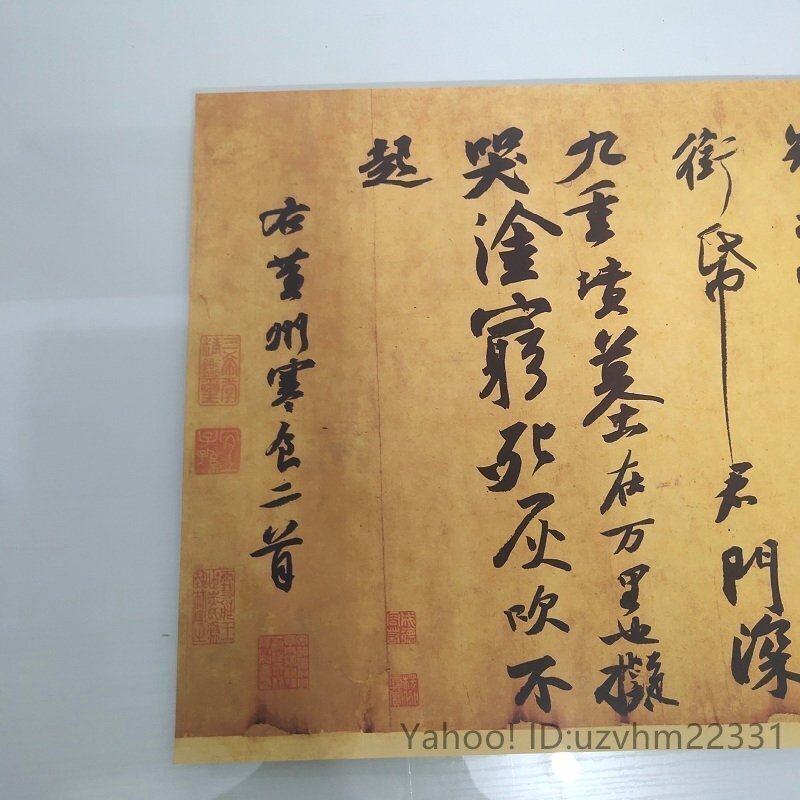 銜帋君門深
九重墳墓在万里也擬
哭塗窮死灰吹不
起
右黃州寒食二首
Yahoo! ID:uzvhm22331